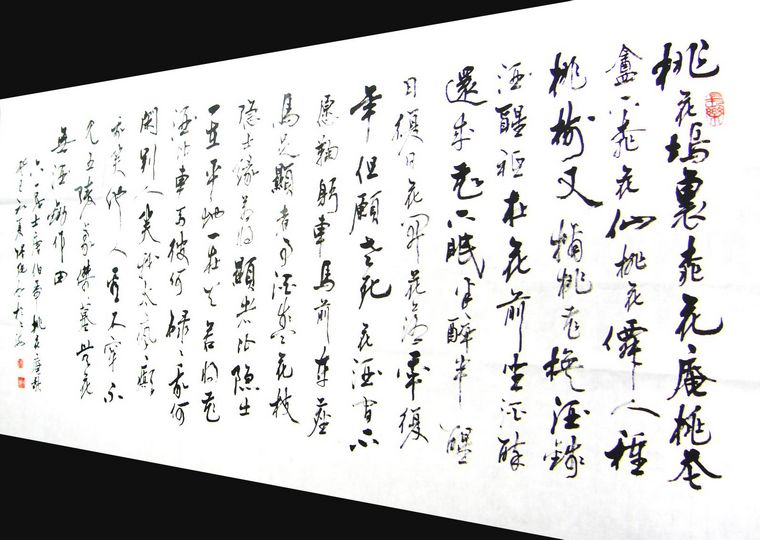 桃花塢裏桃花庵桃花
盦下桃花仙桃花僊人種
桃樹又摘桃花換酒錢
酒醒祇在花前坐酒醉
還來花下眠半醉半醒
日復日花開花落年復
年但願老死花酒間不
愿鞠躬車馬前車塵
馬足顯者事酒盞花枝
隐士緣若将顯者比隐士
一在平地一在天若将花
酒比車馬彼何碌碌我何
閑别人笑我忒風顛
我笑他人看不穿不
見五陵豪傑墓無花
無酒鋤作田
六一居士唐伯虎桃花庵歌